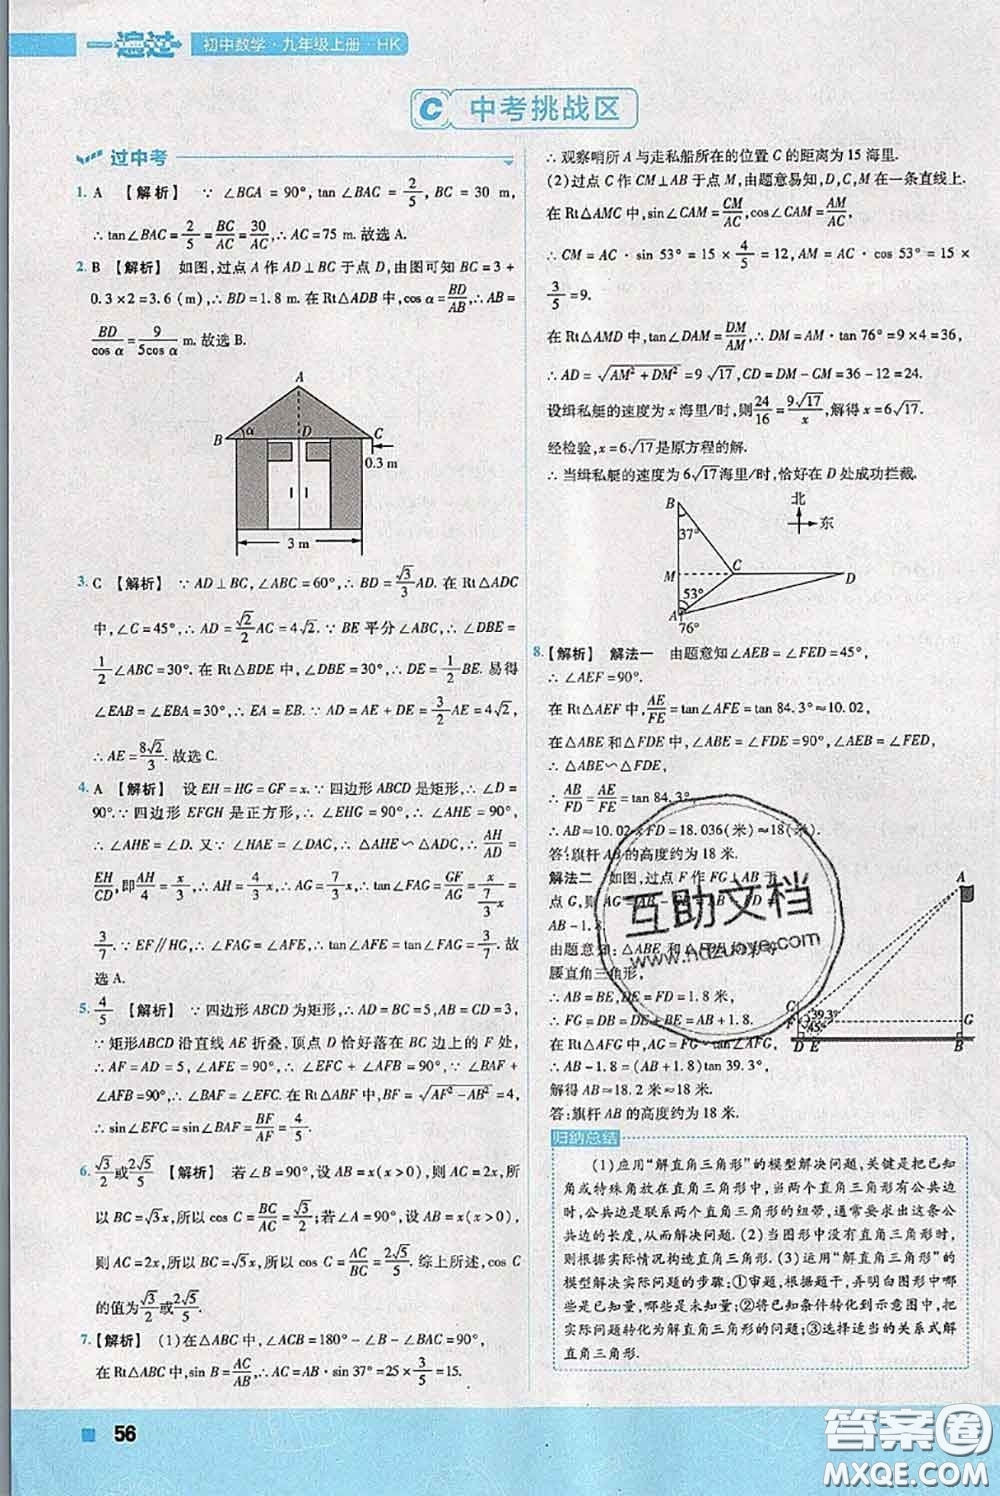 一遍过 初中数学·九年级上册·HK
C 中考挑战区
过中考
1. A 【解析】 ∵ ∠BCA = 90°, tan ∠BAC = 2/5, BC = 30 m,
∴ tan∠BAC = 2/5 = BC/AC = 30/AC, ∴ AC = 75 m. 故选 A.
2. B 【解析】 如图,过点 A 作 AD⊥BC 于点 D,由图可知 BC = 3 +
0.3 × 2 = 3.6 (m), ∴ BD = 1.8 m. 在 Rt△ADB 中, cos α = BD/AB, ∴ AB =
BD/cos α = 9/5cos α m. 故选 B.
A
B α D C
0.3 m
3 m
3. C 【解析】 ∵ AD⊥BC, ∠ABC = 60°, ∴ BD = √3/3 AD. 在 Rt△ADC
中, ∠C = 45°, ∴ AD = √2/2 AC = 4√2. ∵ BE 平分∠ABC, ∴ ∠DBE =
1/2∠ABC = 30°. 在 Rt△BDE 中, ∠DBE = 30°, ∴ DE = 1/2 BE. 易得
∠EAB = ∠EBA = 30°, ∴ EA = EB. ∵ AD = AE + DE = 3/2 AE = 4√2,
∴ AE = 8√2/3. 故选 C.
4. A 【解析】 设 EH = HG = GF = x. ∵ 四边形 ABCD 是矩形, ∴ ∠D =
90°. ∵ 四边形 EFGH 是正方形, ∴ ∠EHG = 90°, ∴ ∠AHE = 90°,
∴ ∠AHE = ∠D. 又∵ ∠HAE = ∠DAC, ∴ △AHE∽△ADC, ∴ AH/AD =
EH/CD, 即 AH/4 = x/3, ∴ AH = 4/3 x, ∴ tan∠FAG = GF/AG = x/(7/3 x) =
3/7. ∵ EF∥HG, ∴ ∠FAG = ∠AFE, ∴ tan∠AFE = tan∠FAG = 3/7. 故
选 A.
5. 4/5 【解析】 ∵ 四边形 ABCD 为矩形, ∴ AD = BC = 5, AB = CD = 3.
∵ 矩形ABCD 沿直线 AE 折叠,顶点 D 恰好落在 BC 边上的 F 处,
∴ AF = AD = 5, ∠AFE = 90°, ∴ ∠EFC + ∠AFB = 90°. ∵ ∠BAF +
∠AFB = 90°, ∴ ∠BAF = ∠EFC. 在 Rt△ABF 中, BF = √(AF² − AB²) = 4,
∴ sin∠EFC = sin∠BAF = BF/AF = 4/5.
6. √3/2或2√5/5 【解析】 若∠B = 90°, 设 AB = x(x > 0), 则 BC = 2x, 所
以 AC = √5x, 所以 cos C = BC/AC = 2√5/5; 若∠A = 90°, 设 AB = x(x > 0), 则
以 BC = √3x, 所以 cos C = AC/BC = √3/2. 综上所述, cos C
的值为√3/2或2√5/5.
7. 【解析】 (1) 在△ABC 中, ∠ACB = 180° − ∠B − ∠BAC = 90°,
在 Rt△ABC 中, sin B = AC/AB, ∴ AC = AB · sin 37° = 25 × 3/5 = 15.
∴ 观察哨所 A 与走私船所在的位置 C 的距离为 15 海里.
(2) 过点 C 作 CM⊥AB 于点 M, 由题意易知, D, C, M 在一条直线上.
在 Rt△AMC 中, sin∠CAM = CM/AC, cos∠CAM = AM/AC,
∴ CM = AC · sin 53° = 15 × 4/5 = 12, AM = AC · cos 53° = 15 ×
3/5 = 9.
在 Rt△AMD 中, tan∠DAM = DM/AM, ∴ DM = AM · tan 76° = 9 × 4 = 36,
∴ AD = √(AM² + DM²) = 9√17, CD = DM − CM = 36 − 12 = 24.
设缉私艇的速度为 x 海里/时, 则24/16 = 9√17/x, 解得 x = 6√17.
经检验, x = 6√17是原方程的解.
∴ 当缉私艇的速度为 6√17海里/时, 恰好在 D 处成功拦截.
北
东
B
37°
M C D
53°
A
76°
8. 【解析】 解法一 由题意知∠AEB = ∠FED = 45°,
∴ ∠AEF = 90°.
在 Rt△AEF 中, AE/FE = tan∠AFE = tan 84.3° ≈ 10.02,
在△ABE 和△FDE 中, ∠ABE = ∠FDE = 90°, ∠AEB = ∠FED,
∴ △ABE∽△FDE,
∴ AB/FD = AE/FE = tan 84.3°,
∴ AB ≈ 10.02 × FD = 18.036(米) ≈ 18(米).
答:旗杆 AB 的高度约为 18 米.
解法二 如图, 过点 F 作 FG⊥AB 于
点 G, 则 AG =
AB − 1.8.
由题意知: △ABE 和
腰直角三角形,
∴ AB = BE, DE = FD = 1.8 米,
∴ FG = DB = DE + BE = AB + 1.8.
在 Rt△AFG 中, AG = FG · tan∠AFG,
即 AB − 1.8 = (AB + 1.8)tan 39.3°,
解得 AB ≈ 18.2 米 ≈ 18 米.
答:旗杆 AB 的高度约为 18 米.
A
C
F 39.3° G
45°
D E B
归纳总结
(1)应用“解直角三角形”的模型解决问题,关键是把已知
角或特殊角放在直角三角形中,当两个直角三角形有公共边
时,公共边是联系两个直角三角形的纽带,通常要求出这条公
共边的长度,从而解决问题.(2)当图形中没有直角三角形时,
则根据实际情况构造直角三角形.(3)运用“解直角三角形”的
模型解决实际问题的步骤:①审题,根据题干,弄明白图形中哪
些是已知量,哪些是未知量;②将已知条件转化到示意图中,把
实际问题转化为解直角三角形的问题;③选择适当的关系式解
直角三角形.
互助文档
www.hdzuoye.com
56
答案圈
MXQE.COM